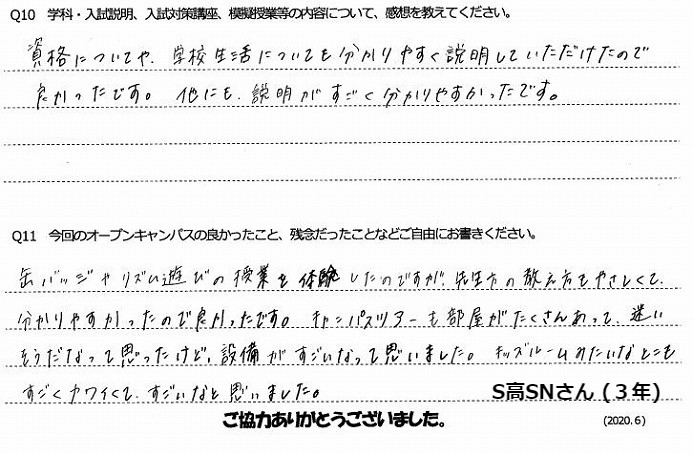 Q10 学科・入試説明、入試対策講座、模擬授業等の内容について、感想を教えてください。
資格についてや、学校生活についても分かりやすく説明していただけたので
良かったです。他にも、説明がすごく分かりやすかったです。
Q11 今回のオープンキャンパスの良かったこと、残念だったことなどご自由にお書きください。
缶バッジやリズム遊びの授業を体験したのですが、先生方の教え方もやさしくて、
分かりやすかったので良かったです。キャンパスツアーも部屋がたくさんあって、迷い
そうだなって思ったけど、設備がすごいなって思いました。キッズルームみたいなところも
すごくカワイくて、すごいなと思いました。
S高SNさん（３年）
ご協力ありがとうございました。
(2020.6)